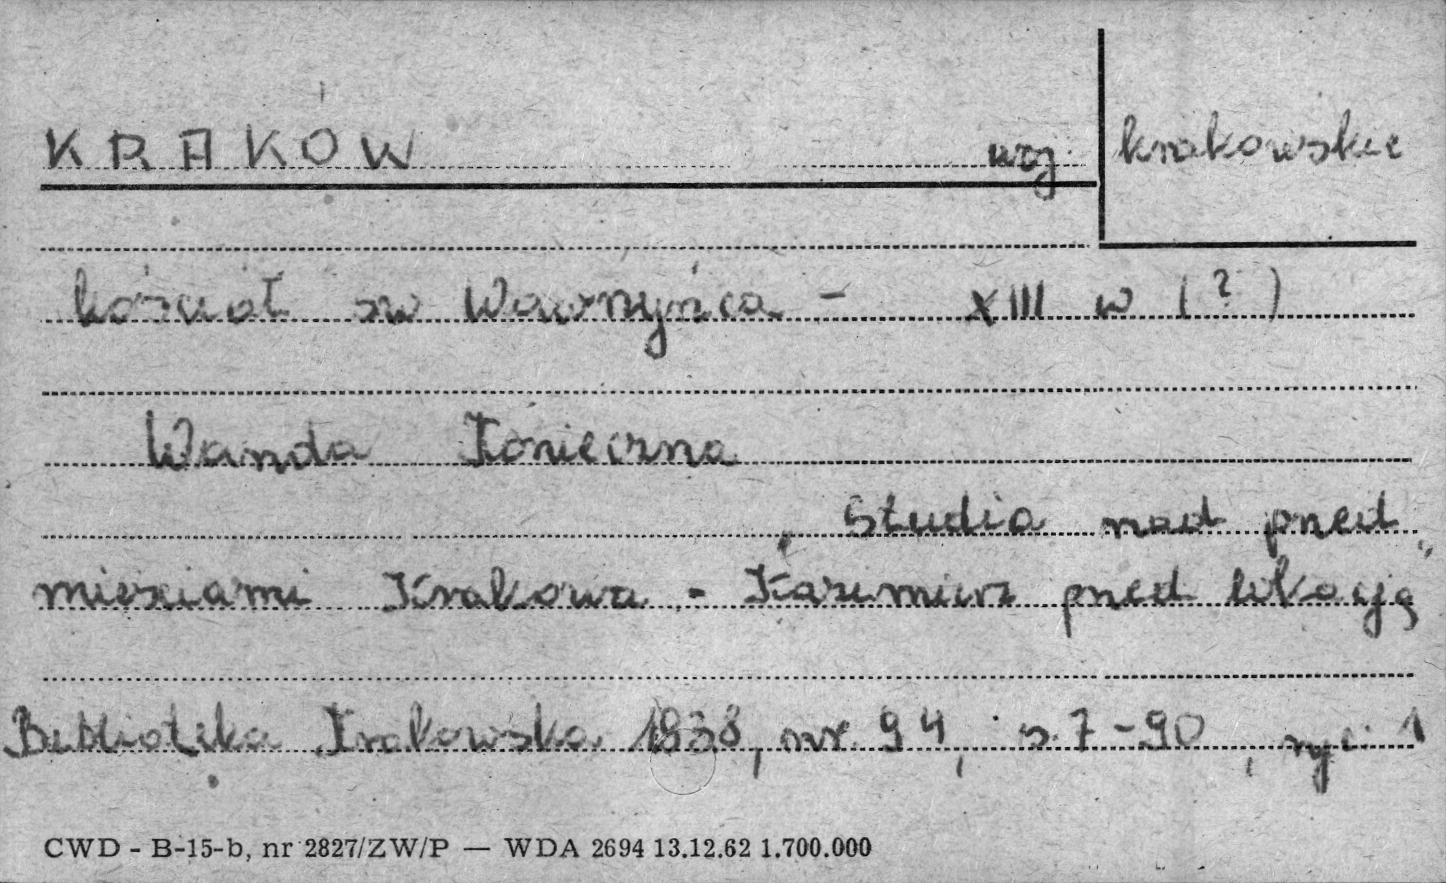 KRAKÓW woj. krakowskie
kościoł św Wawrzyńca - XIII w (?)
Wanda Konieczna
„Studia nad przed
mieściami Krakowa - Kazimierz przed lokacją”
Biblioteka Krakowska 1938, nr 94, s. 7-90, ryc. 1
CWD - B-15-b, nr 2827/ZW/P — WDA 2694 13.12.62 1.700.000